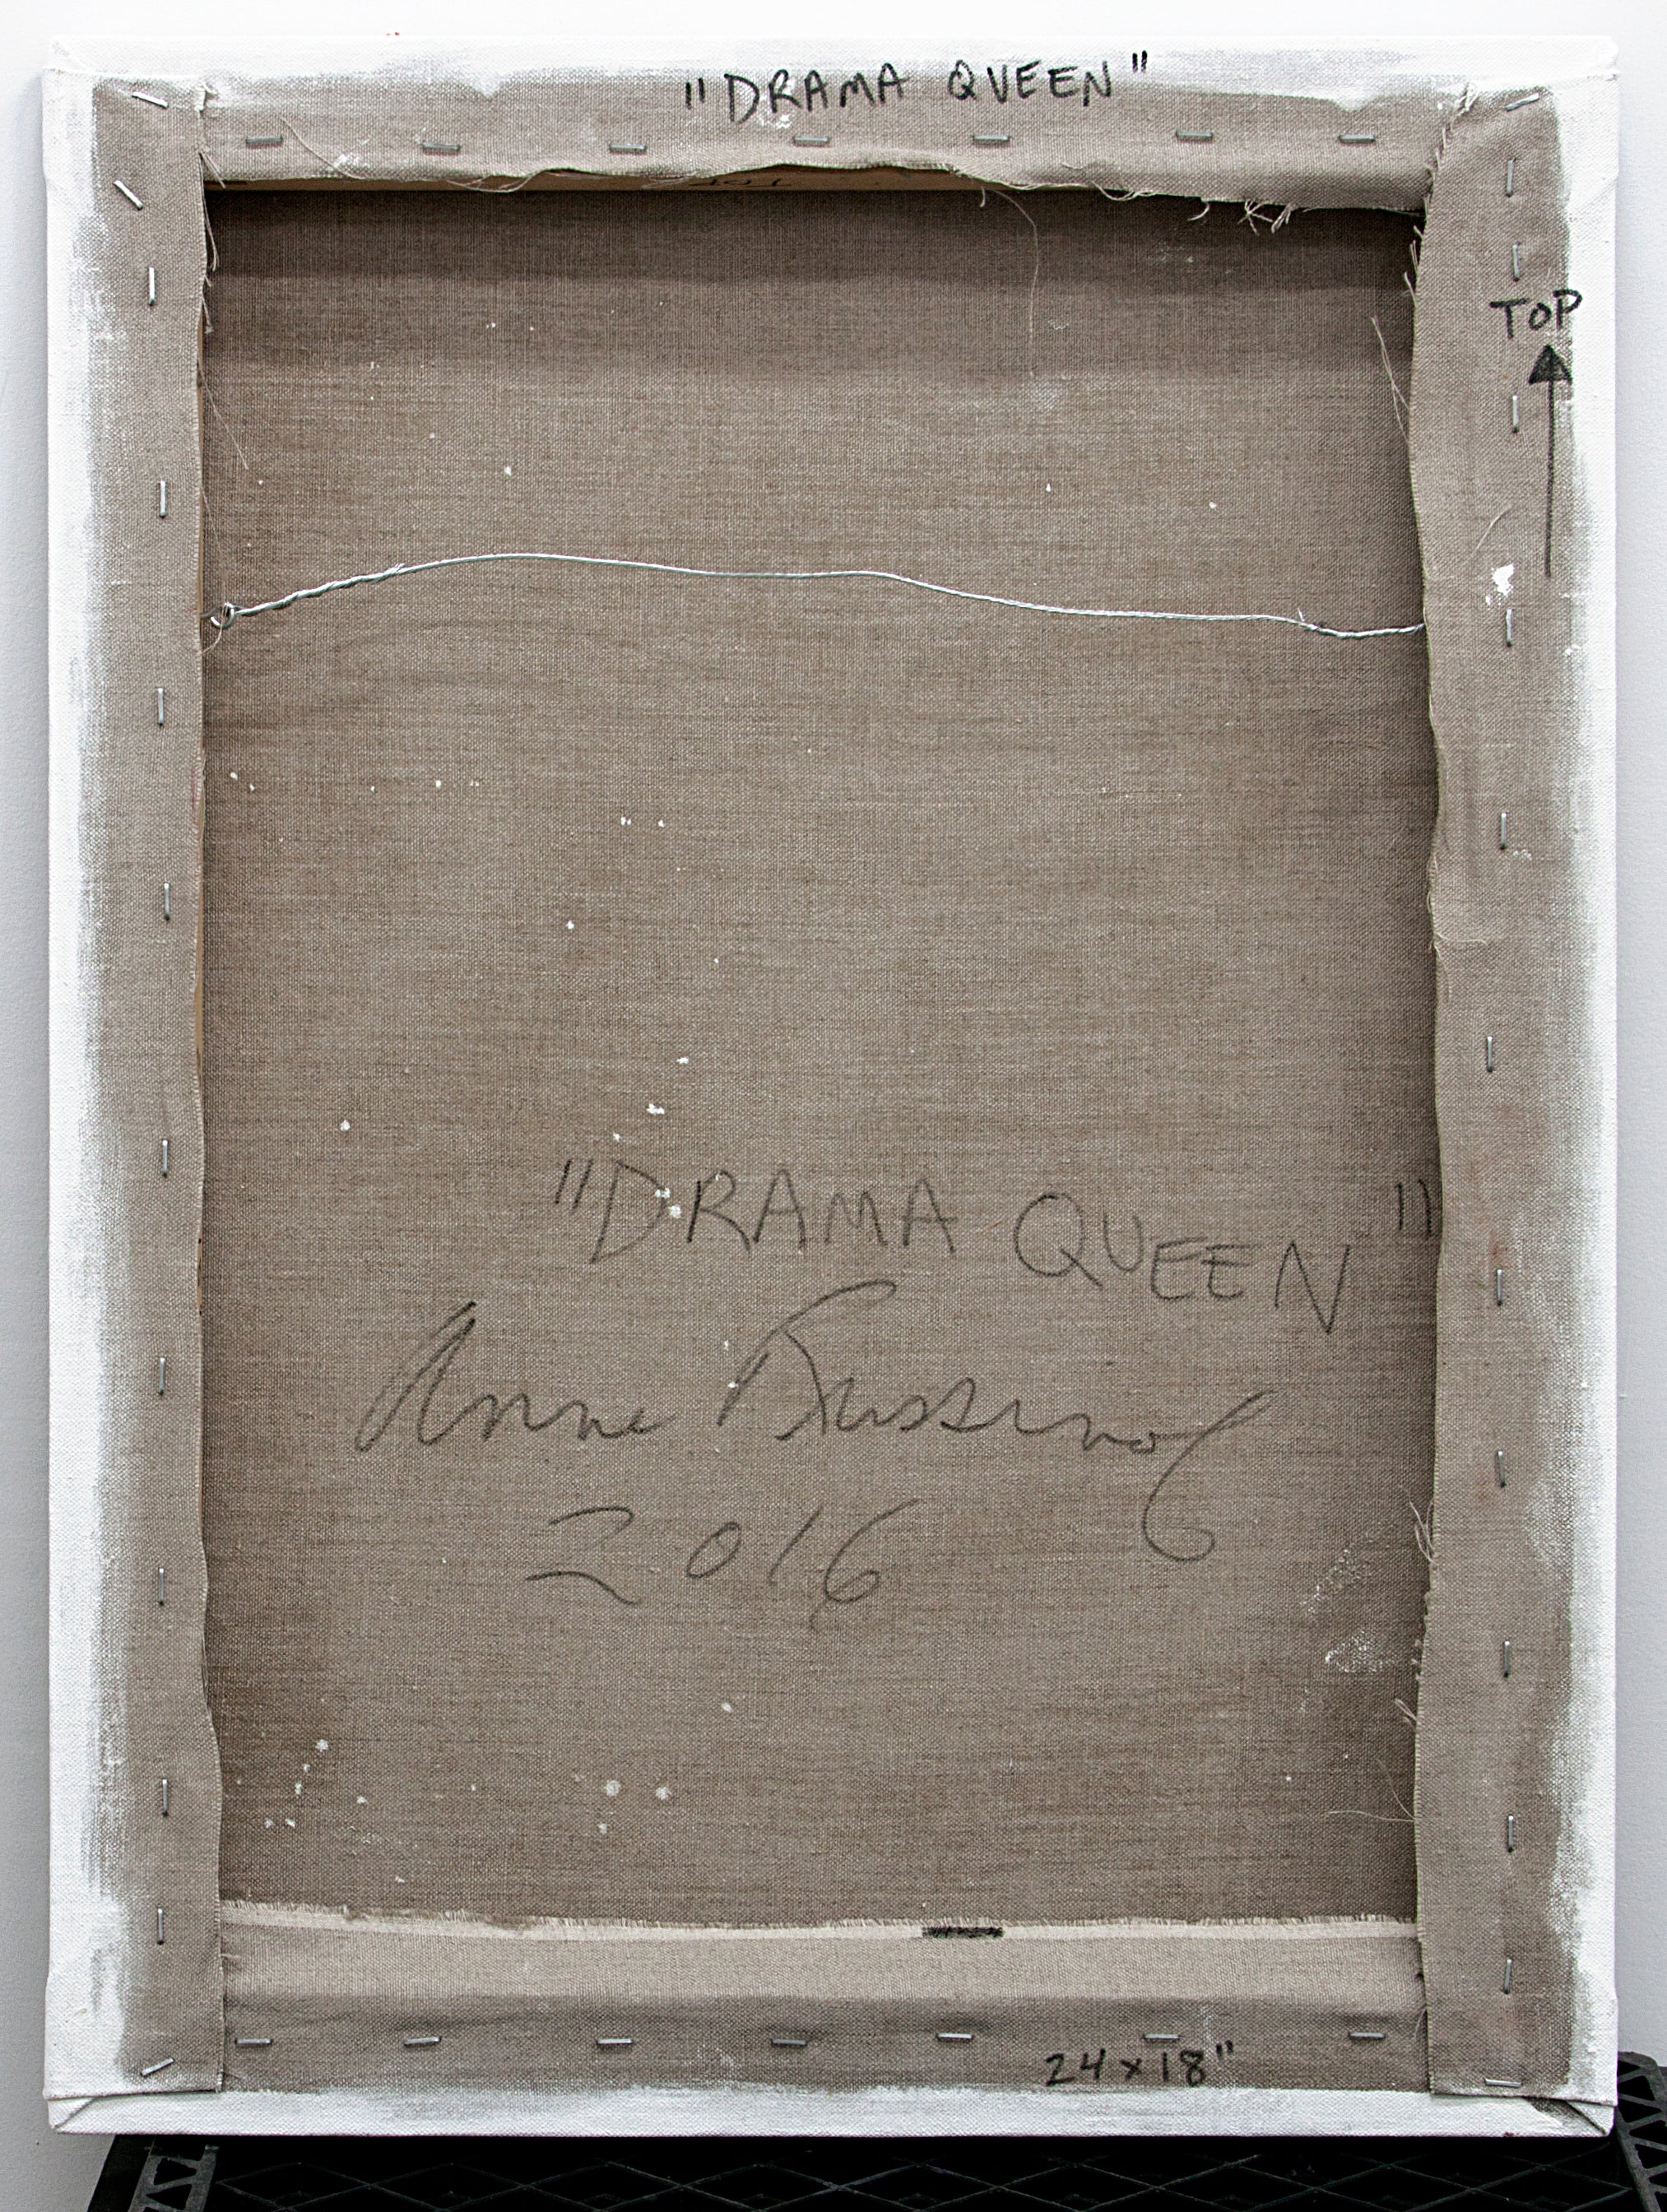 "DRAMA QUEEN"
TOP
"DRAMA QUEEN"
Anne Russinof
2016
24x18"